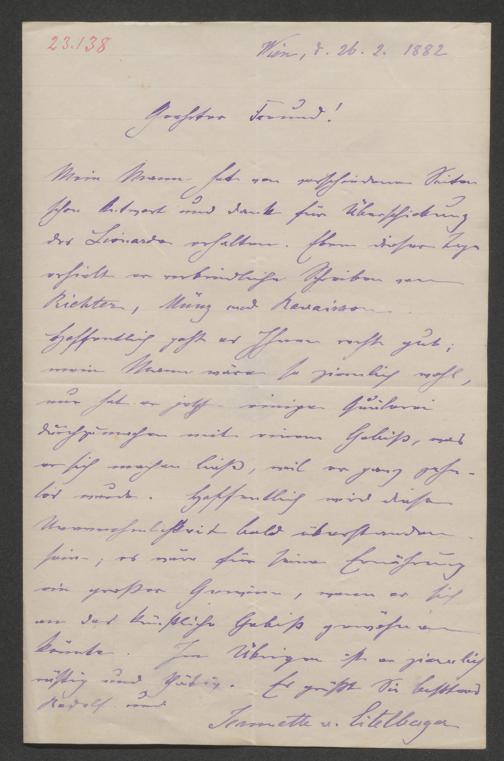 23.138
Wien, d. 26. 2. 1882
Geehrter Freund!
Mein Mann hat von verschiedenen Seiten
schon Antwort und Dank für Überschickung
des Lionardo erhalten. Eben dieser Tage
erhielt er verbindliche Schreiben von
Richter, Münz und Ravaisson.
Hoffentlich geht es Ihnen recht gut;
mein Mann wäre so ziemlich wohl,
nur hat er jetzt einige Quälerei
durchzumachen mit einem Gebiß, was
er sich machen ließ, weil er ganz zahn-
los wurde. Hoffentlich wird diese
Unannehmlichkeit bald überstanden
sein; es wäre für seine Ernährung
ein großer Gewinn, wenn er sich
an das künstliche Gebiß gewöhnen
könnte. Im Übrigen ist er ziemlich
rüstig und thätig. Er grüßt Sie bestens
Rudolf und
Jeannette v. Eitelberger